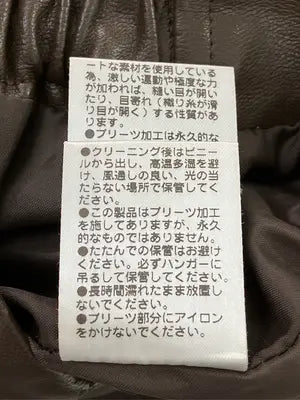 ートな素材を使用している
為、激しい運動や極度な力
が加われば、縫い目が開い
たり、目寄れ(織り糸が滑
り目が開く)する性質があ
ります。
●プリーツ加工は永久的な
●クリーニング後はビニー
ルから出し、高温多湿を避
け、風通しの良い、光の当
たらない場所で保管してく
ださい。
●この製品はプリーツ加工
を施してありますが、永久
的なものではありません。
●たたんでの保管はお避け
ください。必ずハンガーに
吊るして保管してください。
●長時間濡れたまま放置し
ないでください。
●プリーツ部分にアイロン
をかけないでください。